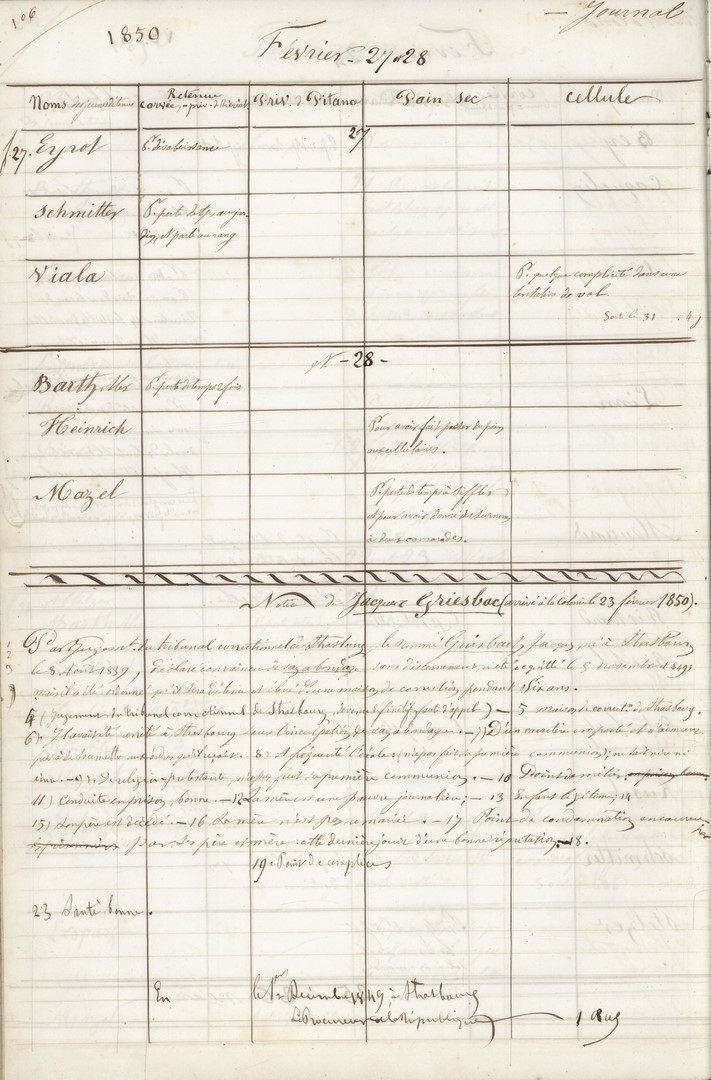 106
1850
— Journal
Février — 27 et 28
Noms des jeunes détenus
Retenue
corvée, - priv. de Récréat.
Priv. de Pitance
Pain sec
Cellule
27
f. 27. Eyrol
Pr. désobéissance
Schmitter
Pr. perte de tps au jar-
din, et parlé au rang
Viala
Pr. quelque complicité dans une
tentative de vol
Sort le 31
N - 28 -
Barth, Alex
Pr. perte de temps 2 fois
Heinrich
Pour avoir fait passer du pain
aux cellulaires.
Mazel
Pr. perte de temps à siffler
et pour avoir donné des surnoms
à deux camarades.
Notice de Jacques Griesbac (arrivé à la Colonie le 23 février 1850).
Par Jugement du tribunal correctionnel de Strasbourg, le nommé Griesbach, Jacques, né à Strasbourg
le 8 Août 1839, déclaré convaincu de vagabondage sans discernement, a été acquitté le 5 novembre 1849;
mais il a été ordonné qu'il sera détenu et élevé dans une maison de correction pendant six ans.
4) (Jugement du tribunal correctionnel de Strasbourg, devenu définitif faute d'appel) — 5 maison de correct. de Strasbourg.
6) Il avait été arrêté à Strasbourg sous l'inculpation de vagabondage. — 7) D'un caractère emporté et n'aimant
pas à se soumettre aux ordres qu'il reçoit. 8) A fréquenté l'école; (n'a pas fait sa première communion); ne sait lire ni
écrire. — 9) De religion protestante, n'a pas fait sa première communion. — 10 Point de métier en prison bonne
11) Conduite en prison, bonne. — 12 La mère est une pauvre journalière; — 13 14
15) Son père est décédé. — 16 La mère n'est pas remariée. — 17 Point de condamnation encourue
par ses père et mère: cette dernière jouit d'une bonne réputation. — 18.
19. Point de complices
23 Santé bonne.
En le 1er Décembre 1849, à Strasbourg
Le Procureur de la République